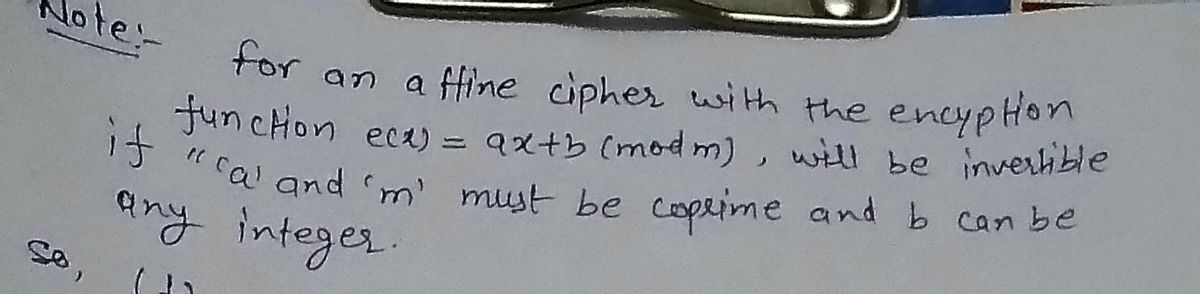 Note:-
for an affine cipher with the encyption
function e(x) = ax+b (mod m), will be invertible
if "'a' and 'm' must be coprime and b can be
any integer.
So,